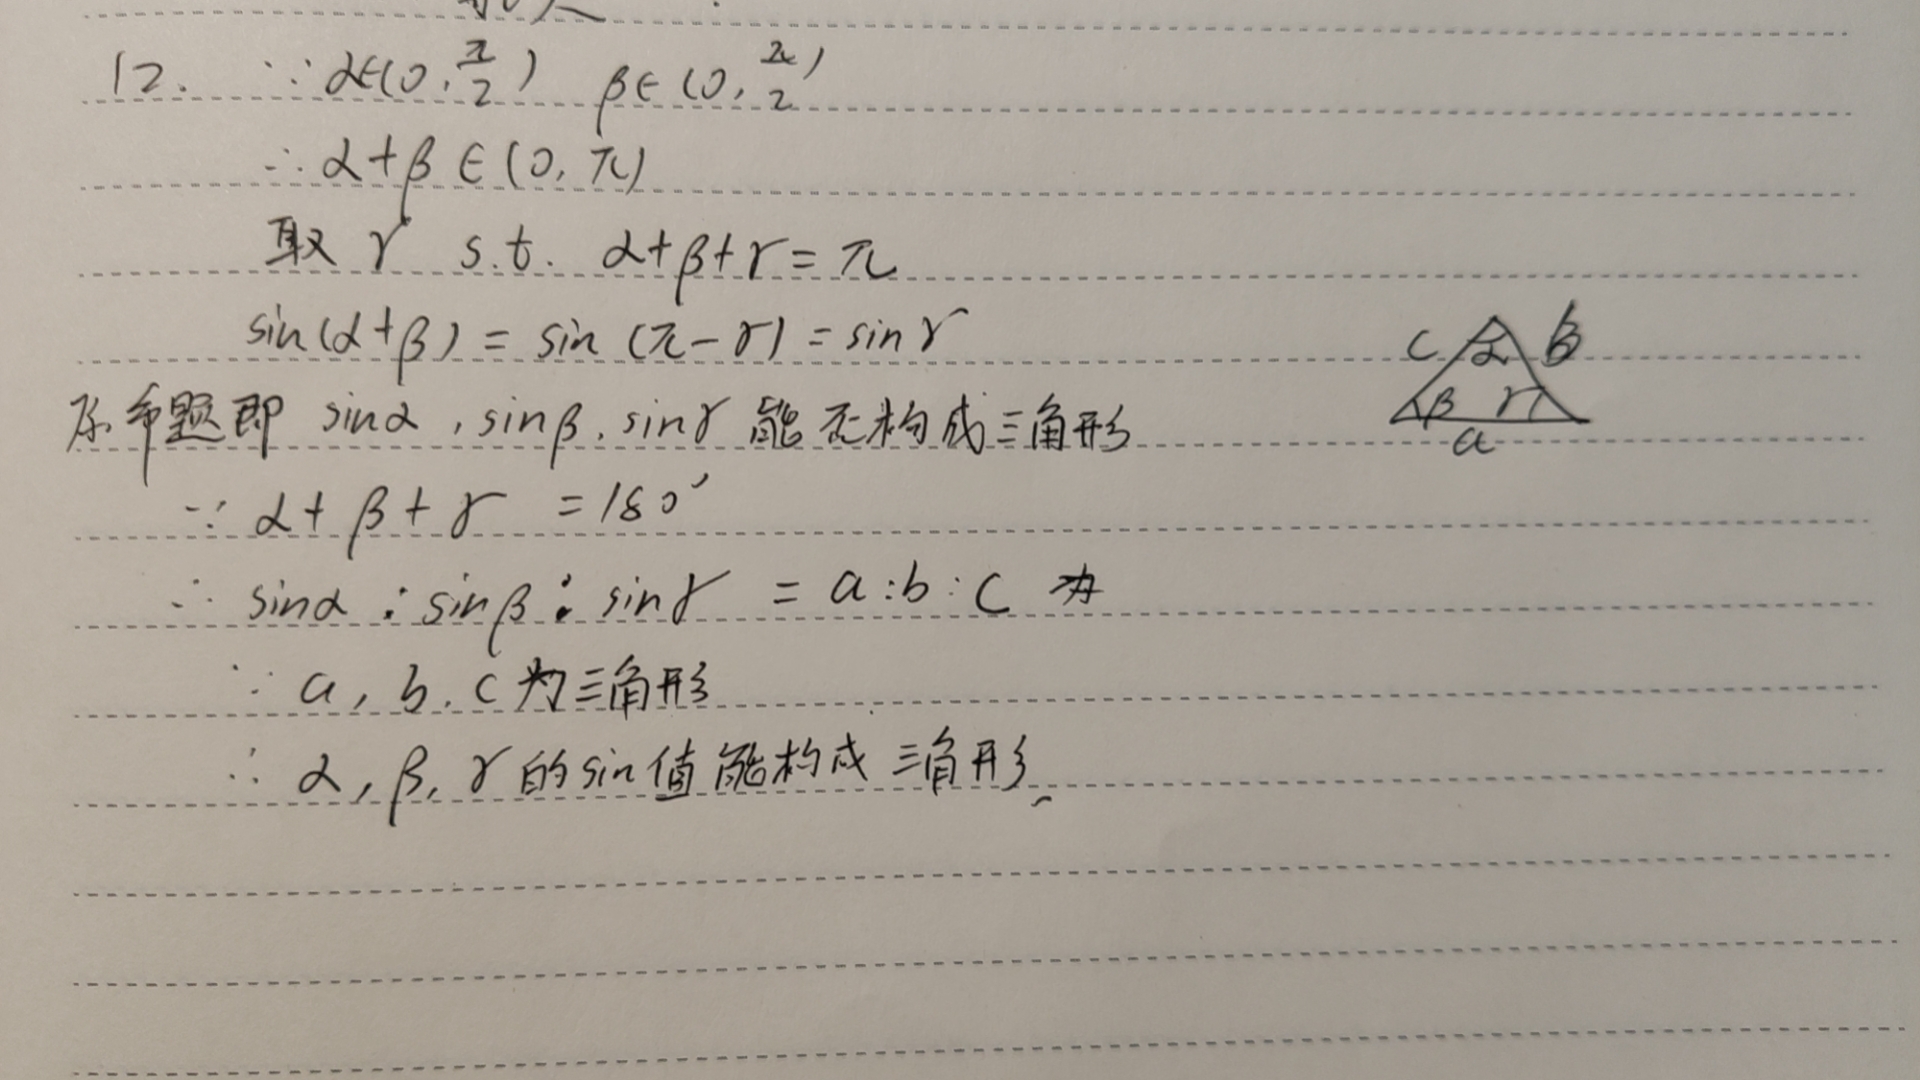 12. ∵ α∈(0, π/2) β∈(0, π/2)
∴ α+β∈(0, π)
取 γ s.t. α+β+γ=π
sin(α+β) = sin(π-γ) = sinγ
原命题即 sinα, sinβ, sinγ 能否构成三角形
c α b
β γ
a
∵ α+β+γ = 180°
∴ sinα : sinβ : sinγ = a:b:c
∵ a, b, c 为三角形
∴ α, β, γ 的 sin 值能构成三角形.